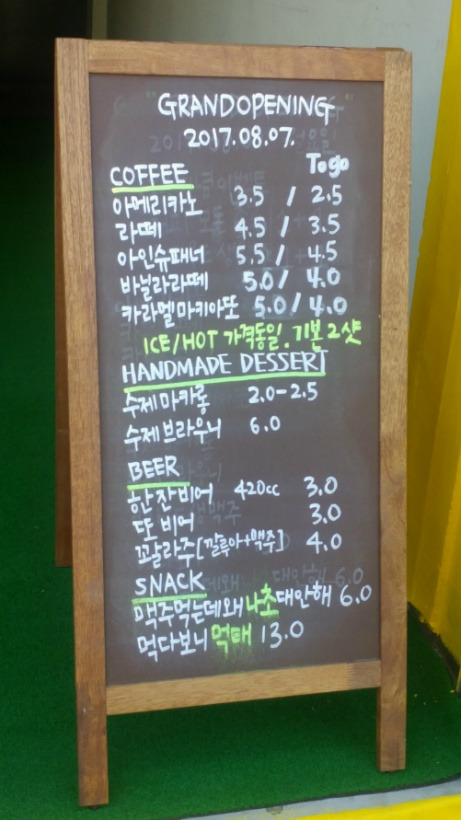 GRAND OPENING
2017.08.07.
To go
COFFEE
아메리카노 3.5 / 2.5
라떼 4.5 / 3.5
아인슈패너 5.5 / 4.5
바닐라라떼 5.0 / 4.0
카라멜마키아또 5.0 / 4.0
ICE/HOT 가격동일. 기본2샷
HANDMADE DESSERT
수제마카롱 2.0-2.5
수제브라우니 6.0
BEER
한잔비어 420cc 3.0
또 비어 3.0
꼬갈라주[깔루아+맥주] 4.0
SNACK
맥주먹는데왜나초대안해 6.0
먹다보니먹태 13.0